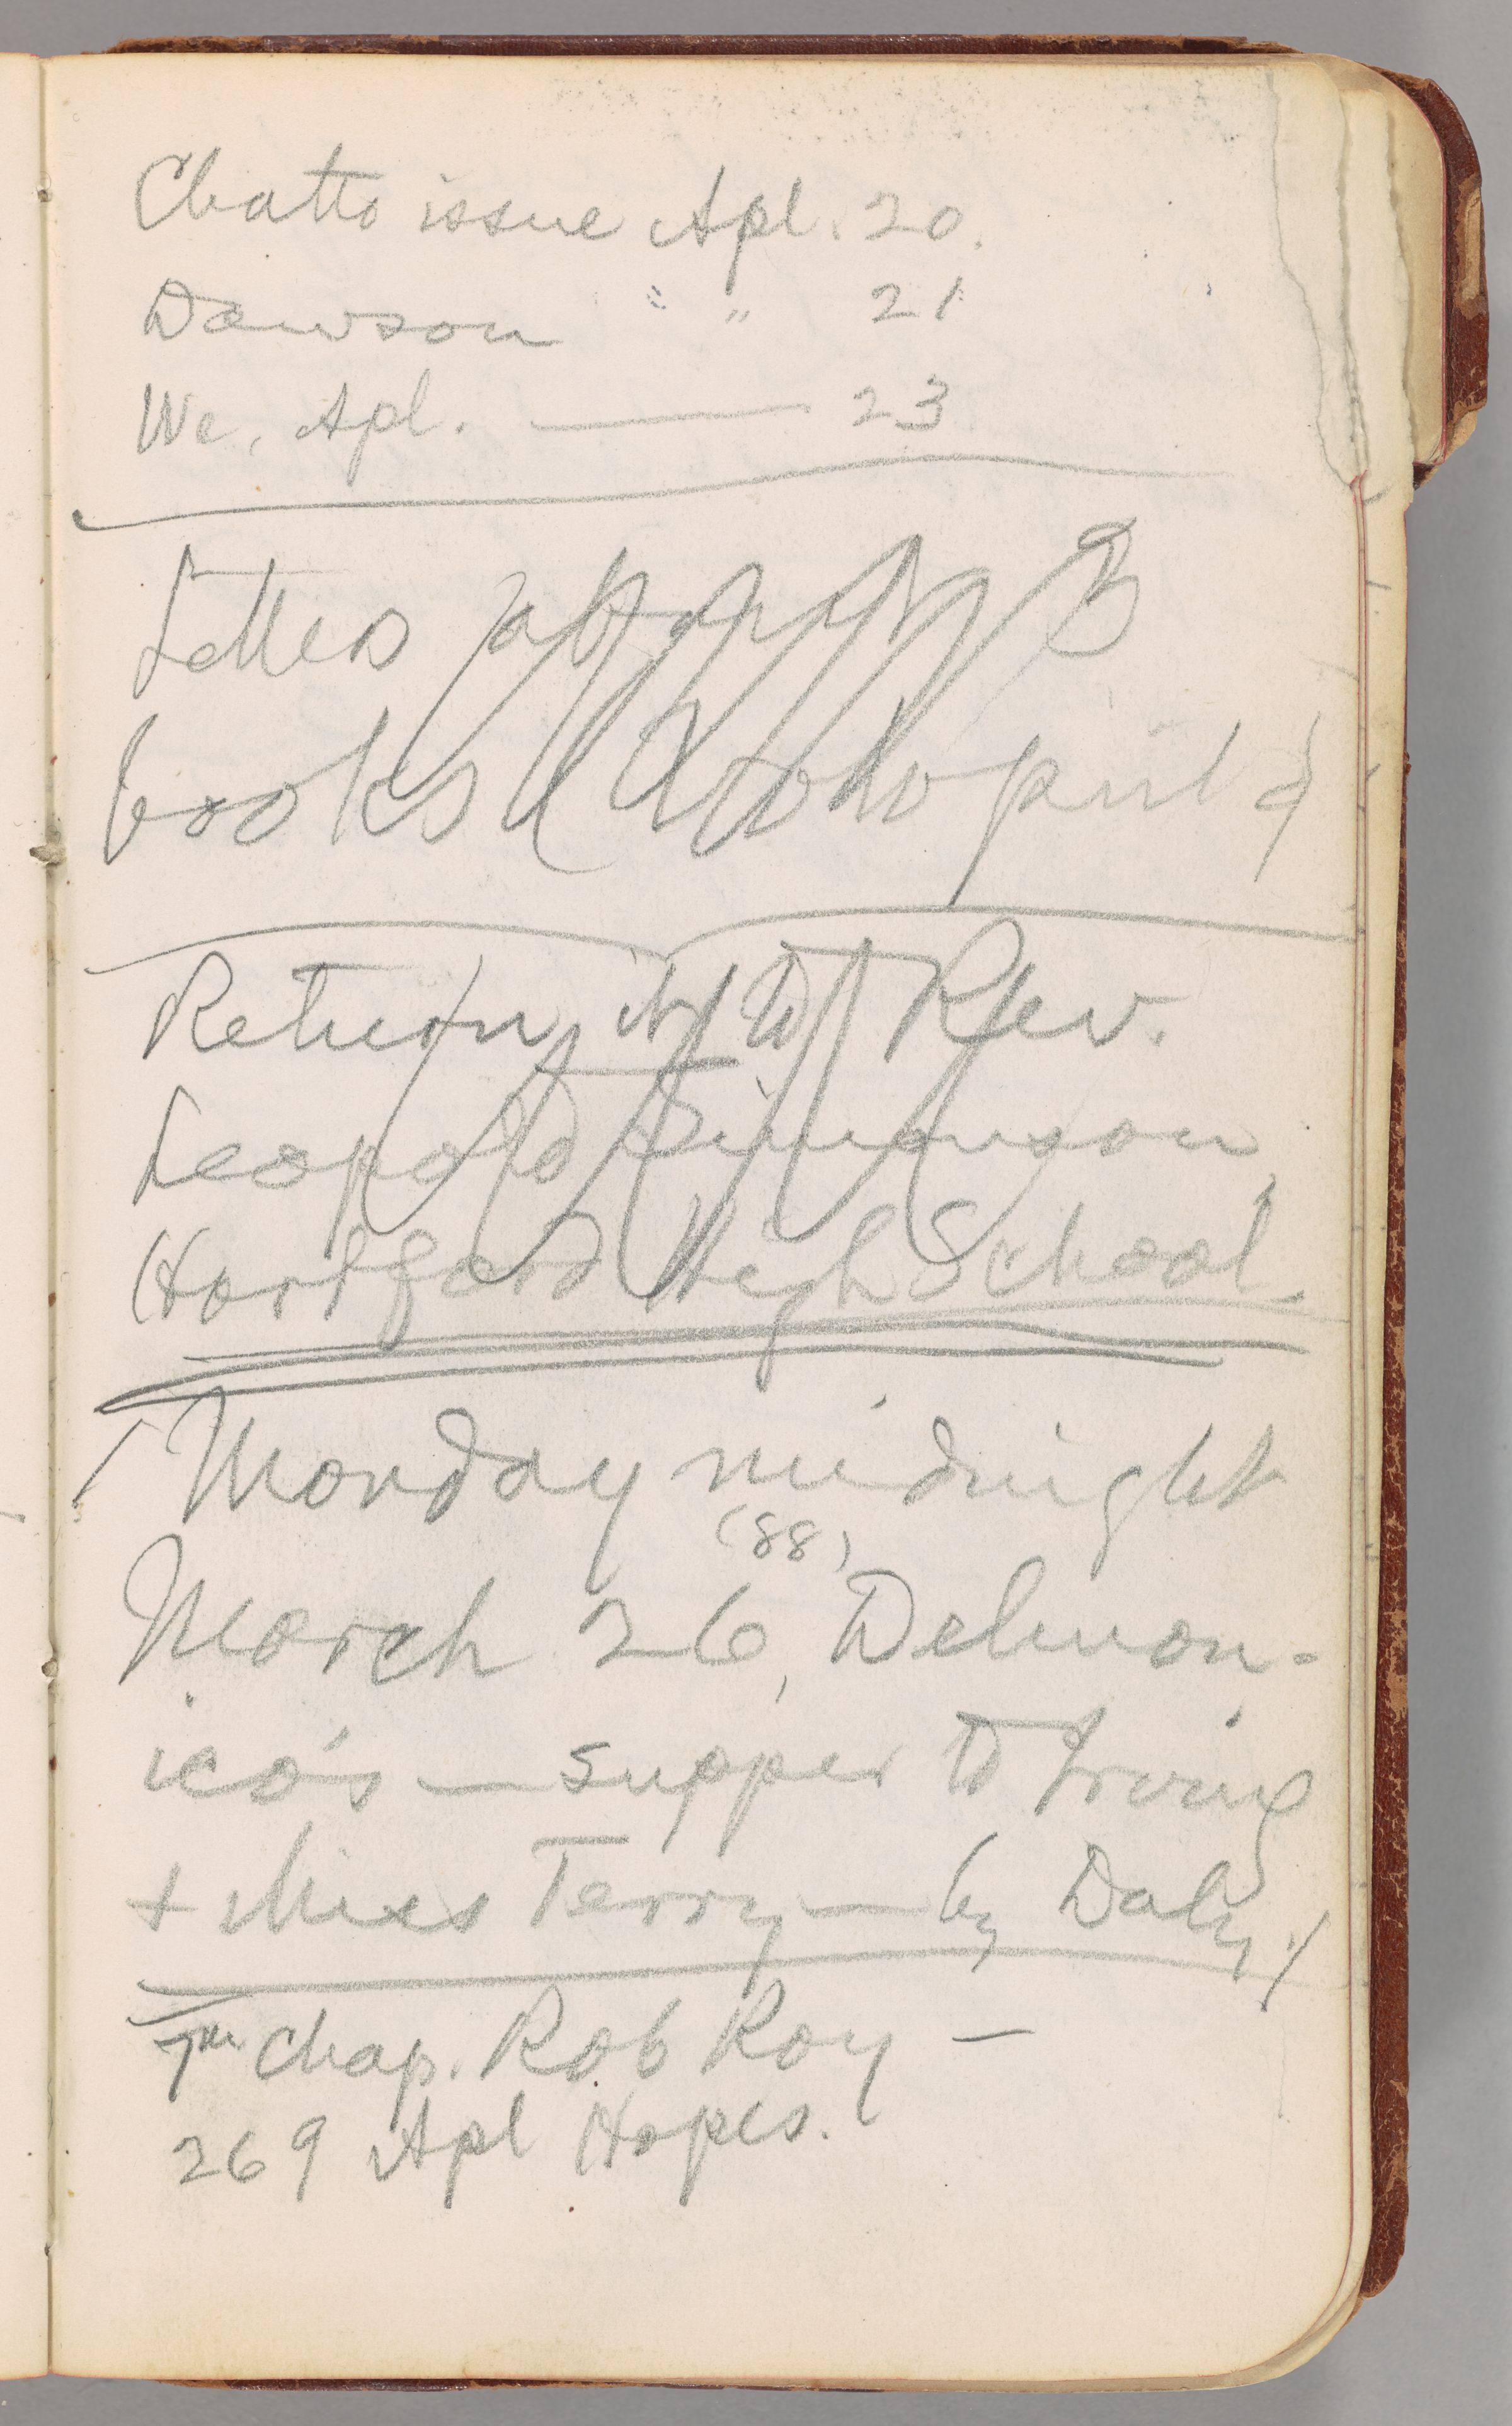 Chatto issue Apl. 20.
Dawson " " 21
We, Apl. — 23
Letters
books print &
Return it to Rev.
Leopold Simonson,
Hartford High School.
Monday midnight
(88)
March 26, Delmon-
ico's — supper to Irving
& Miss Terry — by Daly.
7th Chap. Rob Roy —
269 Apl Hopes.